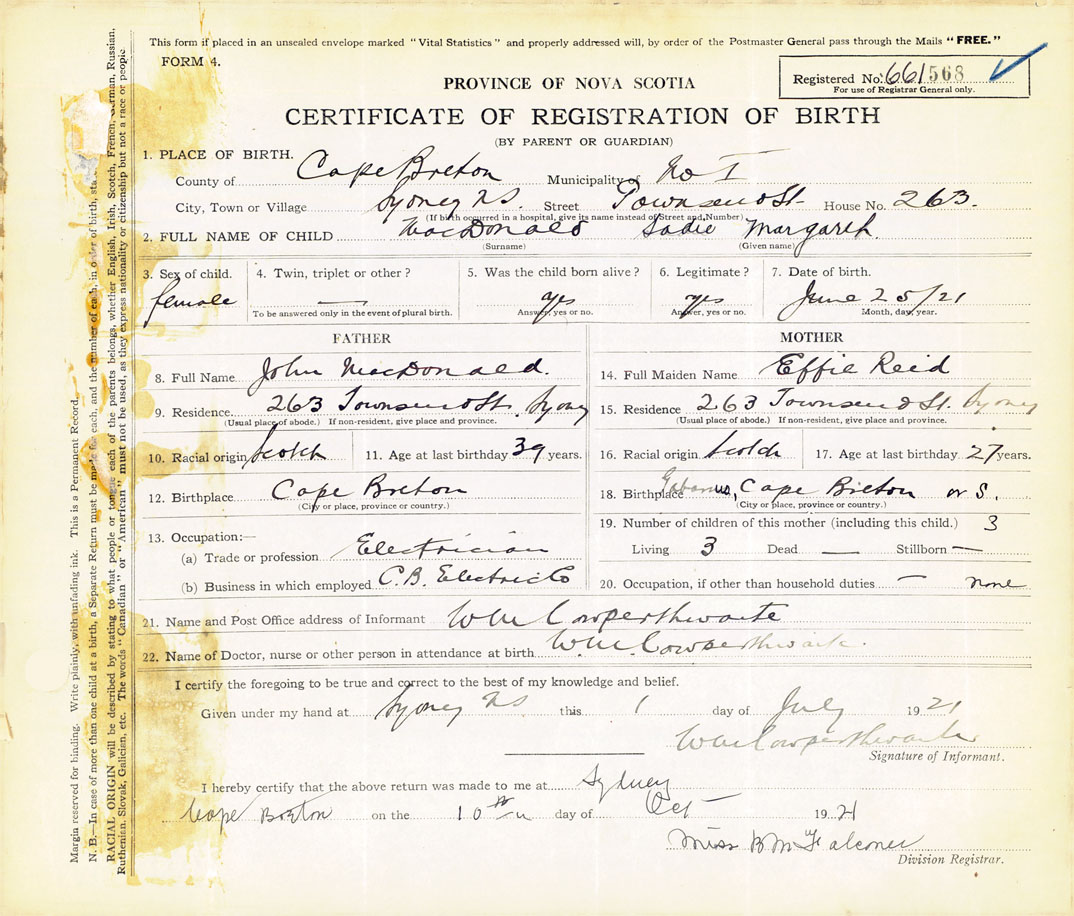 This form if placed in an unsealed envelope marked "Vital Statistics" and properly addressed will, by order of the Postmaster General pass through the Mails "FREE."
FORM 4.
Registered No. 661568
For use of Registrar General only.
PROVINCE OF NOVA SCOTIA
CERTIFICATE OF REGISTRATION OF BIRTH
(BY PARENT OR GUARDIAN)
1. PLACE OF BIRTH.
County of Cape Breton Municipality of No I
City, Town or Village Sydney NS. Street Townsend St. House No. 263.
(If birth occurred in a hospital, give its name instead of Street and Number)
2. FULL NAME OF CHILD MacDonald Sadie Margaret.
(Surname) (Given name)
3. Sex of child. 4. Twin, triplet or other? 5. Was the child born alive? 6. Legitimate? 7. Date of birth.
female — yes yes June 25/21
To be answered only in the event of plural birth. Answer, yes or no. Answer, yes or no. Month, day, year.
FATHER
8. Full Name John MacDonald.
9. Residence. 263 Townsend St. Sydney
(Usual place of abode.) If non-resident, give place and province.
10. Racial origin Scotch 11. Age at last birthday 39 years.
12. Birthplace Cape Breton
(City or place, province or country.)
13. Occupation:—
(a) Trade or profession Electrician
(b) Business in which employed C.B. Electric Co
MOTHER
14. Full Maiden Name Effie Reid
15. Residence 263 Townsend St. Sydney
(Usual place of abode.) If non-resident, give place and province.
16. Racial origin Scotch 17. Age at last birthday 27 years.
18. Birthplace Gabarus, Cape Breton N S.
(City or place, province or country.)
19. Number of children of this mother (including this child.) 3
Living 3 Dead — Stillborn —
20. Occupation, if other than household duties. — none
21. Name and Post Office address of Informant Wm Cowperthwaite
22. Name of Doctor, nurse or other person in attendance at birth Wm Cowperthwaite.
I certify the foregoing to be true and correct to the best of my knowledge and belief.
Given under my hand at Sydney NS this 1 day of July 1921
Wm Cowperthwaite
Signature of Informant.
I hereby certify that the above return was made to me at Sydney
Cape Breton on the 10th day of Oct 1921
Miss B M Falconer
Division Registrar.
Margin reserved for binding. Write plainly, with unfading ink. This is a Permanent Record.
N. B.—In case of more than one child at a birth, a Separate Return must be made for each, and the number of each, in order of birth, sta
RACIAL ORIGIN will be described by stating to what people or tongue each of the parents belongs, whether English, Irish, Scotch, French, German, Russian,
Ruthenian, Slovak, Galician, etc. The words "Canadian" or "American" must not be used, as they express nationality or citizenship but not a race or people